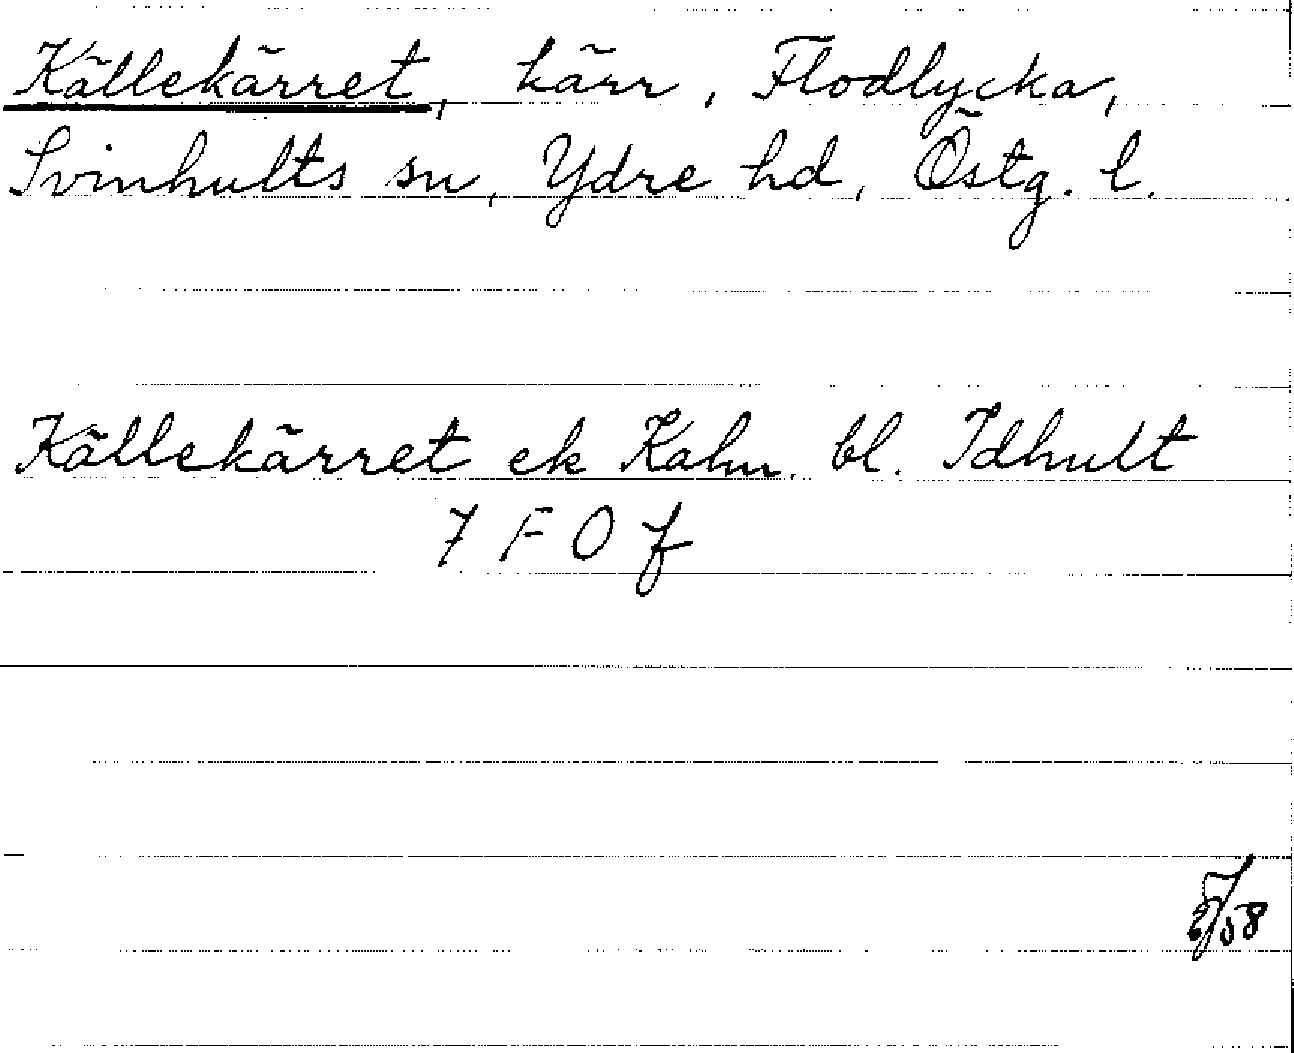 Källekärret, kärr, Flodlycka,
Svinhults sn, Ydre hd, Östg. l.
Källekärret ek Kahn. bl. Idhult
7 F O f